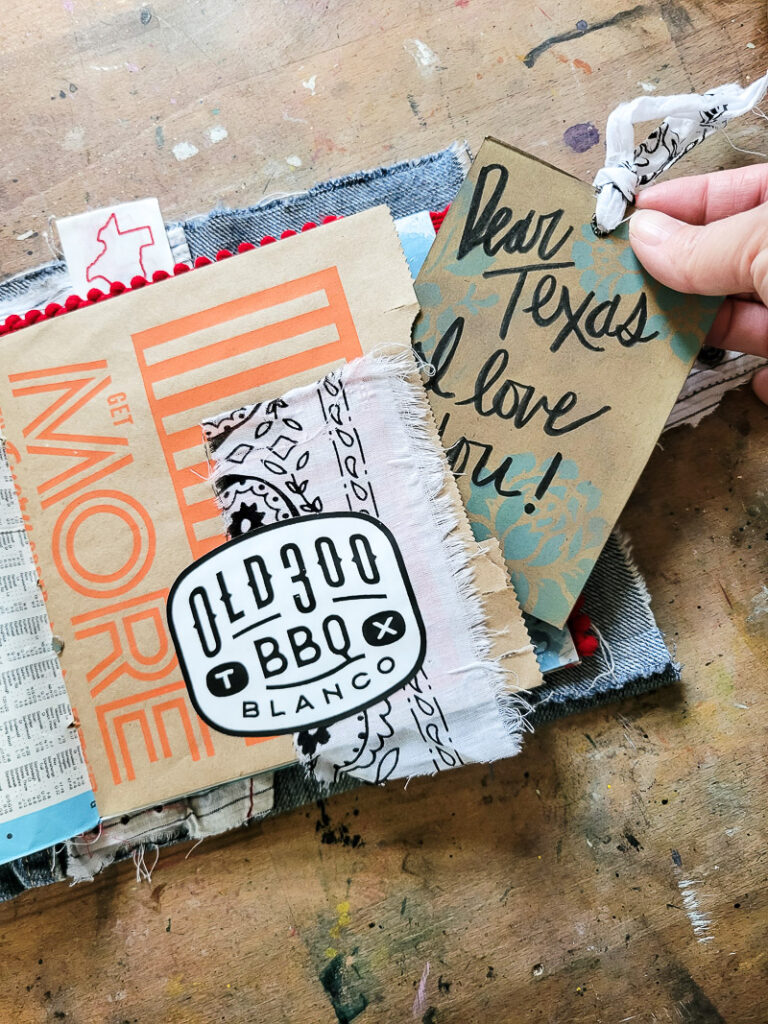 Dear
Texas
I love
you!
GET
MORE
OLD 300
BBQ
T X
BLANCO